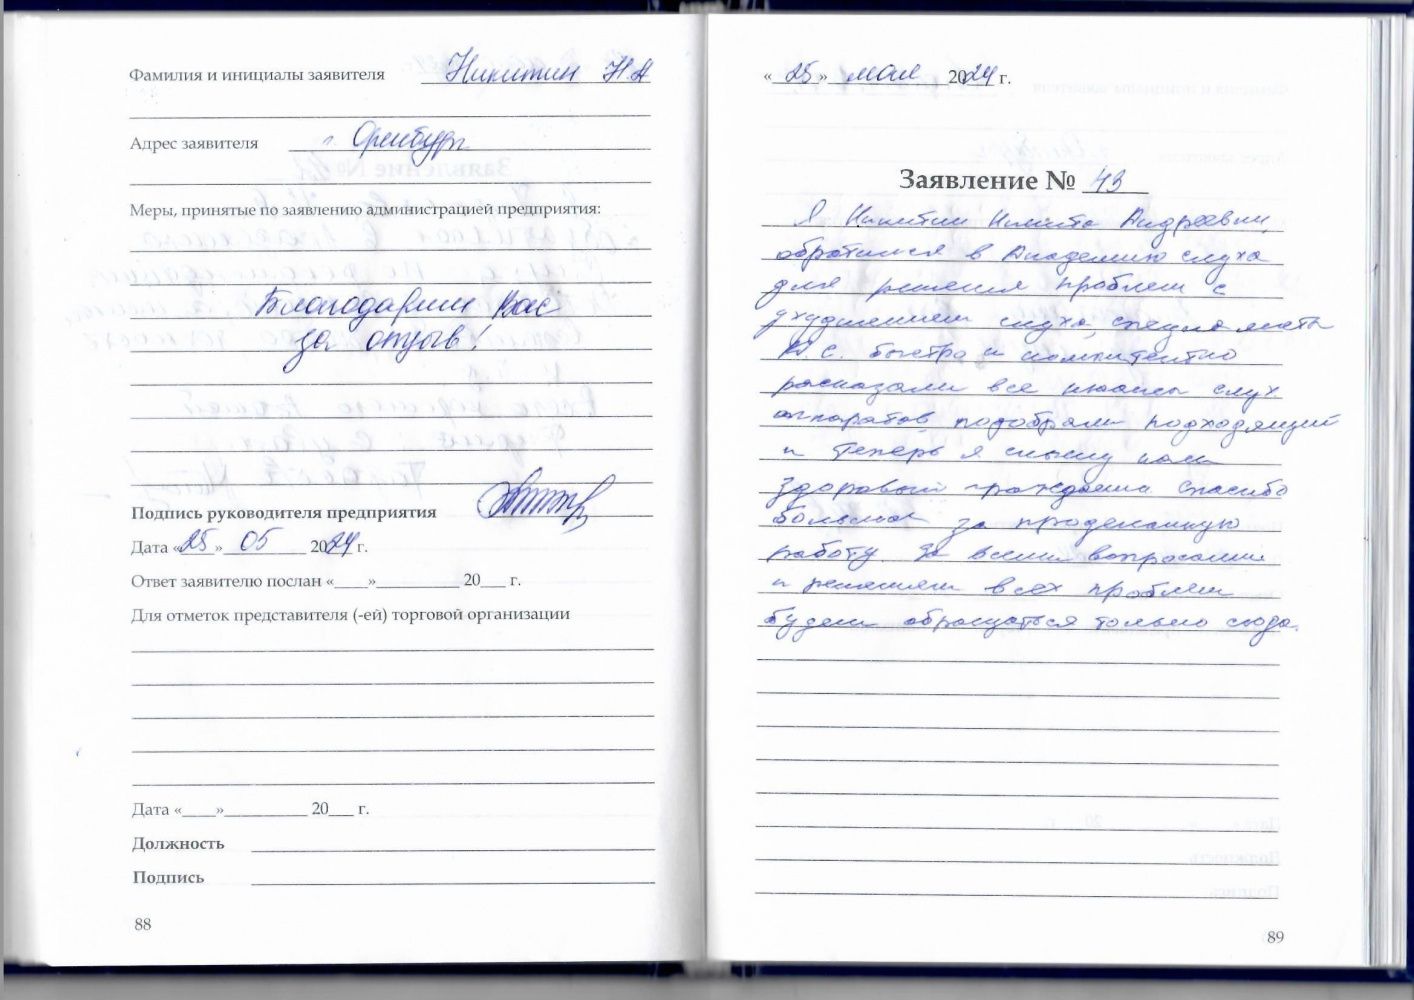 Фамилия и инициалы заявителя Никитин Н.А
Адрес заявителя г. Оренбург
Меры, принятые по заявлению администрацией предприятия:
Благодарим Вас
за отзыв!
Подпись руководителя предприятия
Дата «25» 05 2024 г.
Ответ заявителю послан «____»__________ 20___ г.
Для отметок представителя (-ей) торговой организации
Дата «____»__________ 20___ г.
Должность
Подпись
88
«25» мая 2024 г.
Заявление № 43
Я Никитин Никита Андреевич,
обратился в Академию слуха
для решения проблем с
ухудшением слуха, специалисты
А.С. быстро и компитентно
расказали все нюансы слух.
аппаратов, подобрали подходящий
и теперь я слышу как
здоровый гражданин. Спасибо
большое за проделанную
работу. За всеми вопросами
и решением всех проблем
будем обращаться только сюда.
89